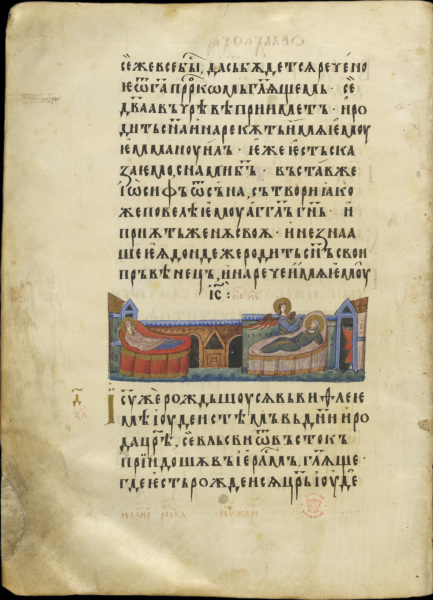 се же все бы, да събѫдетсѧ речено
ѥ ѿ г҃а пр҃ркомь гл҃ѧщемь · се
дв҃аа въ чрѣвѣ прииметъ · и ро
дитъ сн҃а и нарекѫтъ имѧ ѥмоу
ѥмманоуилъ · ѥже ѥстъ ска
заѥмо, с нами б҃ъ · въставже
іѡсифъ ѿ съна, сътвори ꙗко
же повелѣ ѥмоу аг҃глъ г҃нь · и
приѧтъ женѫ своѫ · и не знаа
ше ѥѧ дондеже родитъ сн҃ъ свои
пръвѣнець, и нарече имѧ ѥмоу
іс҃ :
Іс҃у же рождьшоусѧ въ виѳлеѥ
мѣ іоудеистѣмъ въ дн҃и иро
да цр҃ѣ, се влъсви ѿ въстокъ
прїидошѧ въ іер҃лмъ, гл҃ѧще ·
где ѥстъ рождеисѧ цр҃ь іоуде